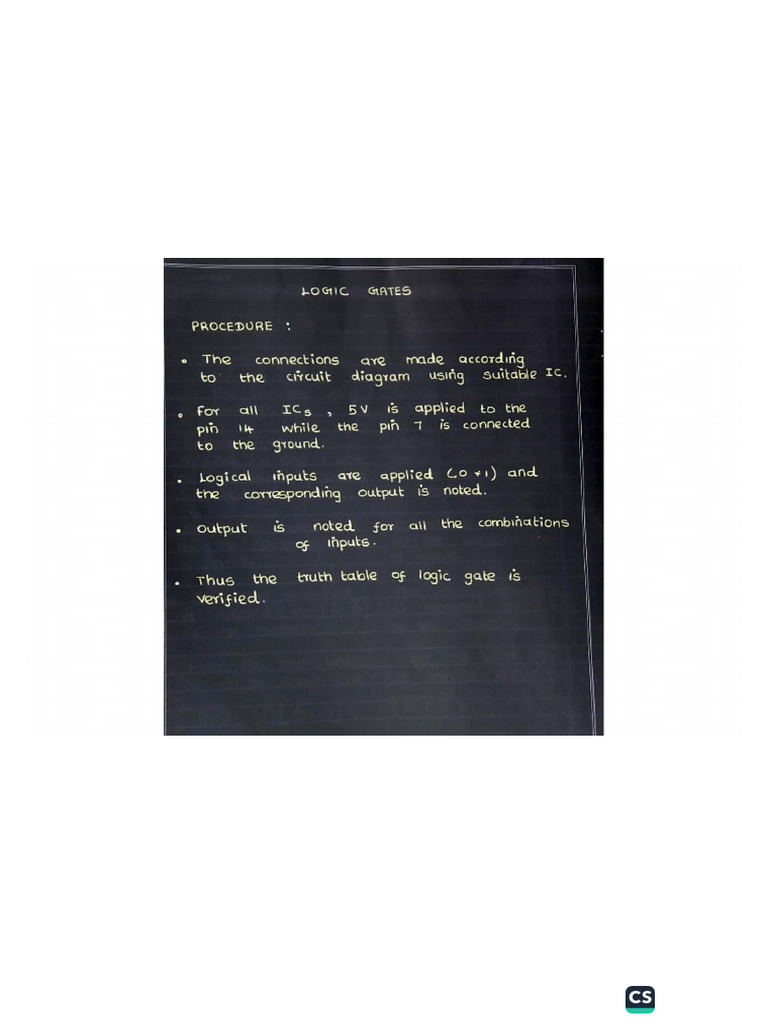 LOGIC GATES
PROCEDURE :
• The connections are made according
to the circuit diagram using suitable IC.
• For all ICs , 5V is applied to the
pin 14 while the pin 7 is connected
to the ground.
• Logical inputs are applied (0 & 1) and
the corresponding output is noted.
• Output is noted for all the combinations
of inputs.
• Thus the truth table of logic gate is
verified.
CS